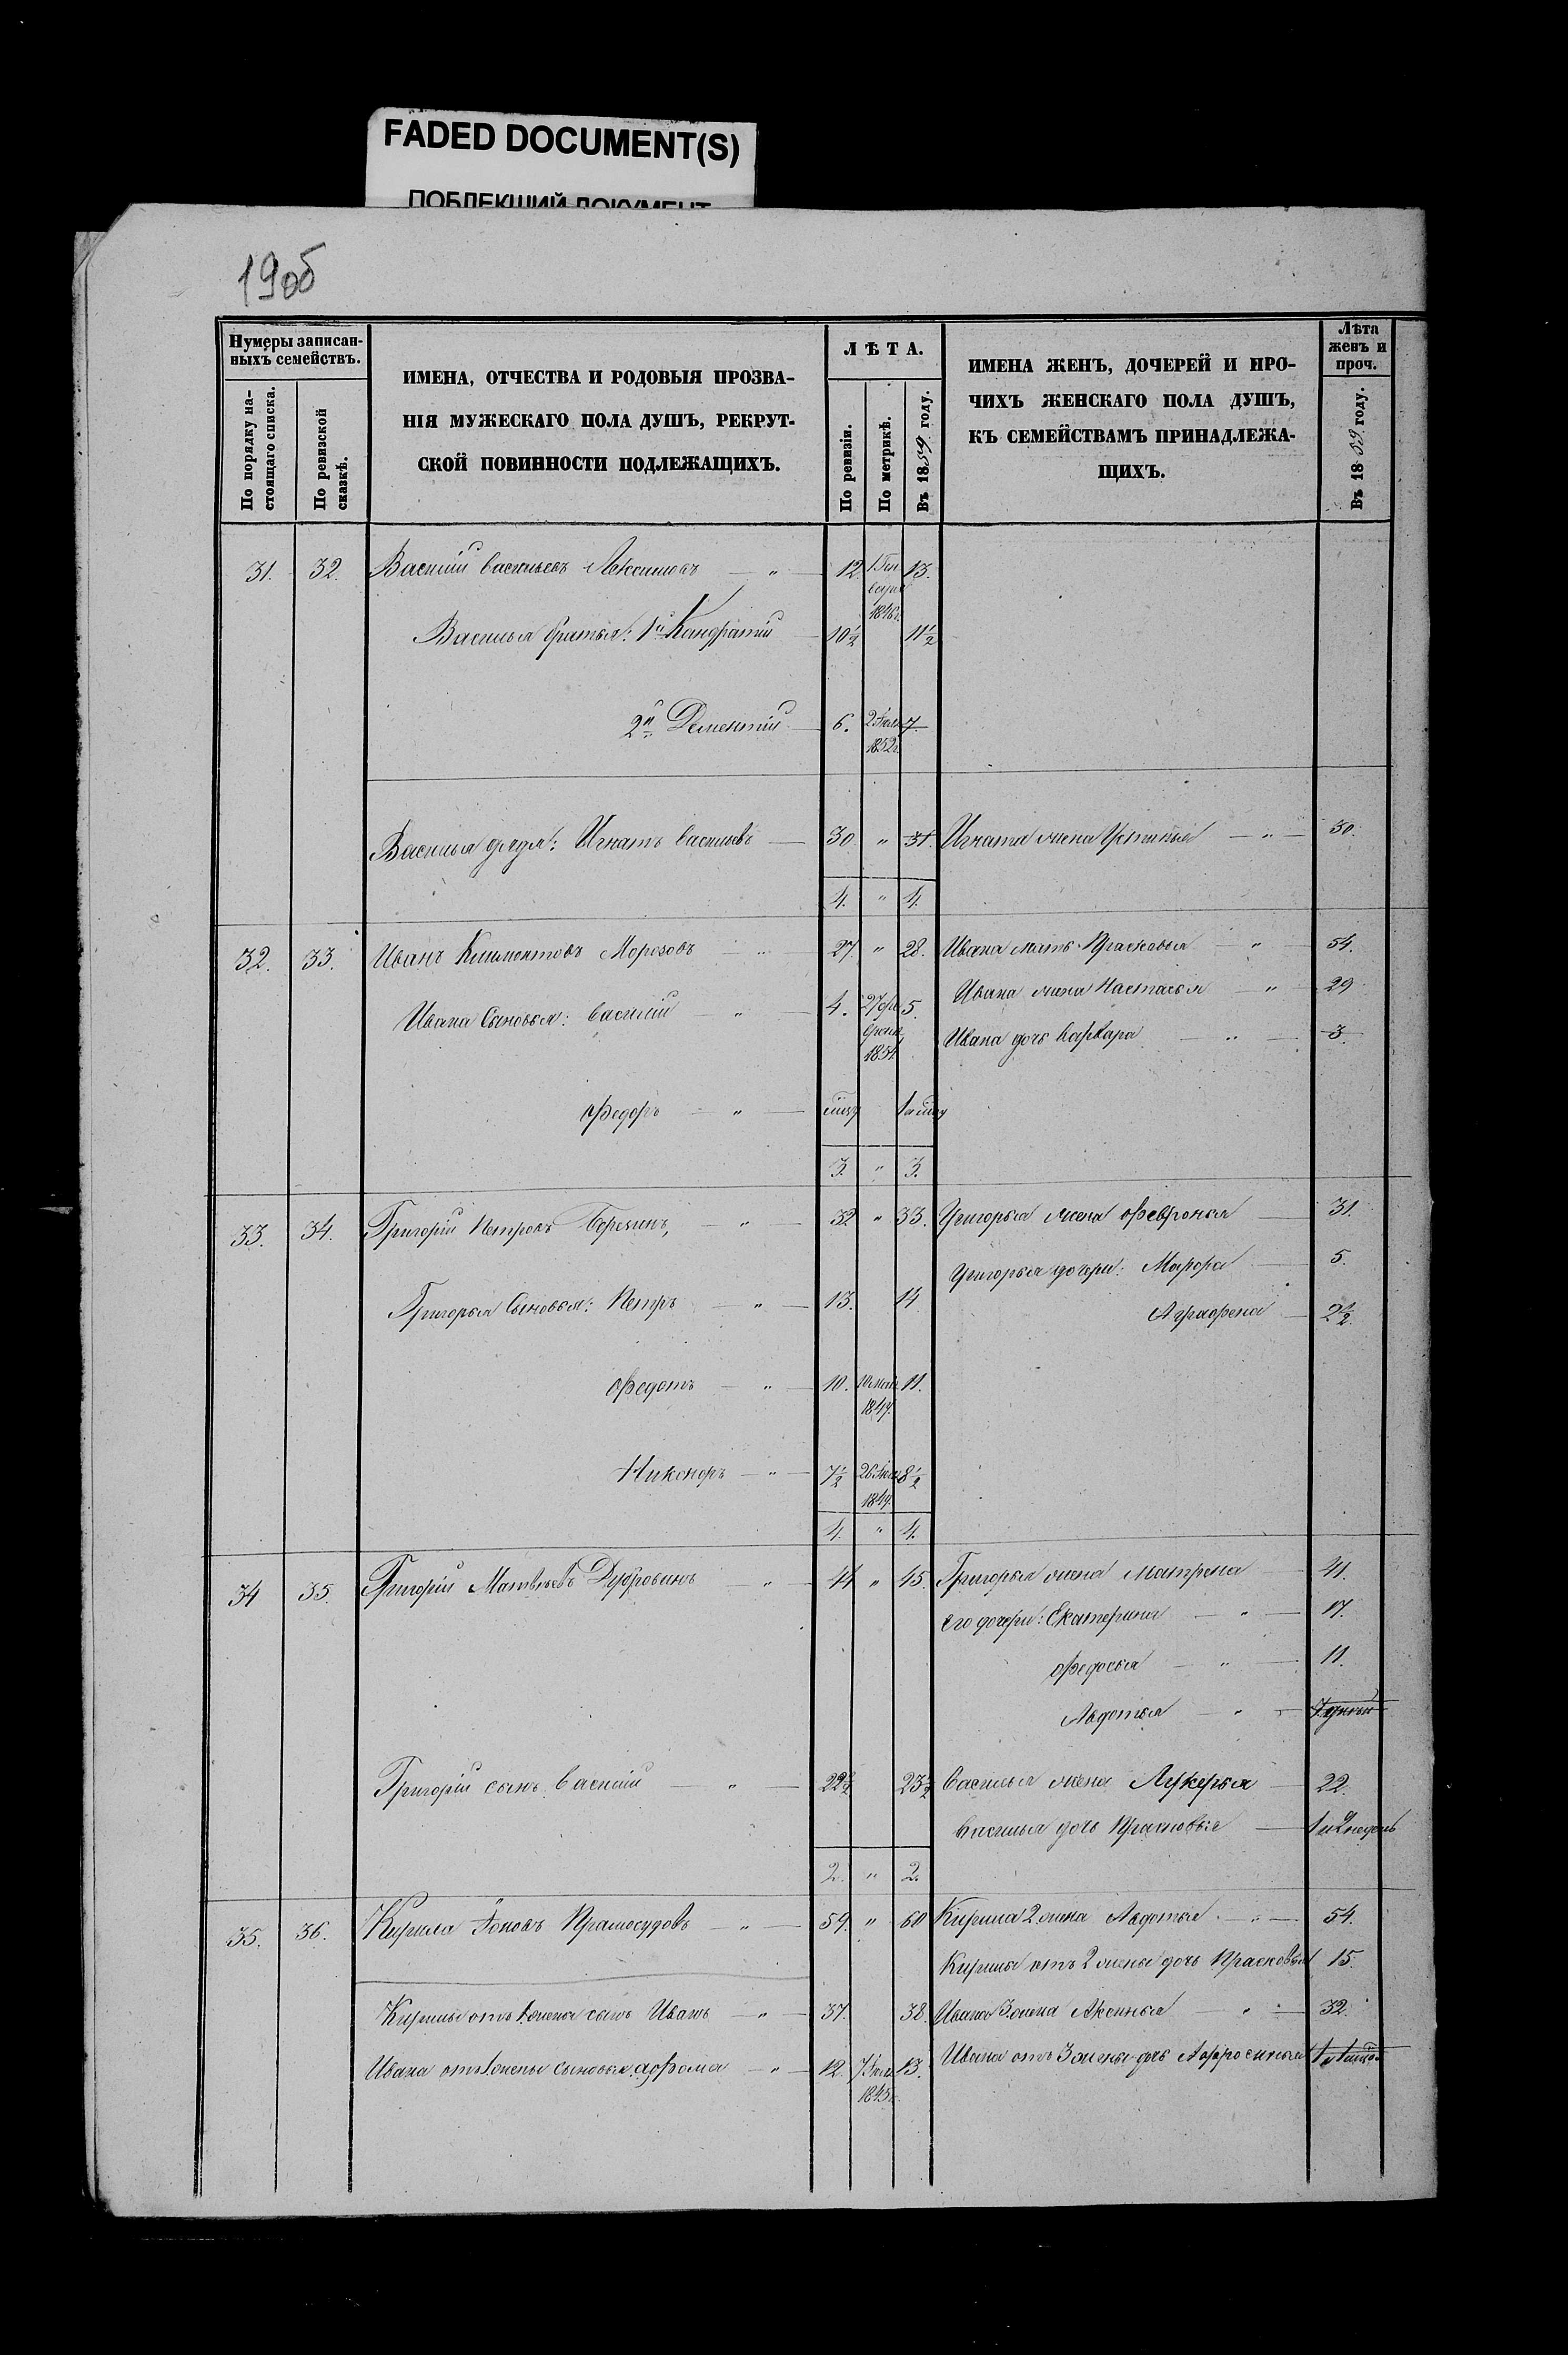 FADED DOCUMENT(S)
ПОБЛЕКШИЙ ДОКУМЕНТ
19об
Нумеры записан-
ныхъ семействъ.
По порядку на-
стоящаго списка.
По ревизской
сказкѣ.
ИМЕНА, ОТЧЕСТВА И РОДОВЫЯ ПРОЗВА-
НІЯ МУЖЕСКАГО ПОЛА ДУШЪ, РЕКРУТ-
СКОЙ ПОВИННОСТИ ПОДЛЕЖАЩИХЪ.
ЛѢТА.
По ревизіи.
По метрикѣ.
Въ 1859 году.
ИМЕНА ЖЕНЪ, ДОЧЕРЕЙ И ПРО-
ЧИХЪ ЖЕНСКАГО ПОЛА ДУШЪ,
КЪ СЕМЕЙСТВАМЪ ПРИНАДЛЕЖА-
ЩИХЪ.
Лѣта
женъ и
проч.
Въ 1859 году.
31. 32. Василій Васильевъ — " — 12. 13.
1846г.
Василья братья: 1й Кандратій — 10½ 11½
2й Дементій — 6. 7.
1852г.
Василья дядя: Игнатъ Васильевъ — 30. " 31. Игната жена Устинья — " — 30.
4. " 4.
32. 33. Иванъ Климонтовъ Морозовъ — " — 27. " 28. Ивана мать Прасковья " — 54.
Ивана жена Настасья " — 29
Ивана Сыновья: Василій — " — 4. 27 фе 5.
вроля
1854
Ивана дочь Варвара — " — 3.
Федоръ — " —
3. " 3.
33. 34. Григорій Петровъ — " — 32 " 33. Григорья жена Февронья — 31.
Григорья дочери: Марфа — 5.
Григорья Сыновья: Петръ — " — 13. 14
Аграфена — 2½
Федотъ — " — 10. 11.
Никоноръ — " — 7½ 8½
1849.
4. " 4.
34 35. Григорій Матвѣевъ Дубровинъ " — 44 " 45. Григорья жена Матрена — 41.
Его дочери: Екатерина — " — 17.
Федосья — " — 11.
Авдотья — " —
Григорій сынъ Василій — " — 22½ 23½ Василья жена Лукерья — 22.
Василья дочь Прасковья — 1 и 2 недель
2. " 2.
35. 36. Кирила Правосудовъ — " — 59. " 60 Кирила 2 жена Авдотья — " — 54.
Кирилы отъ 2 жены дочь Прасковья 15.
Кирилы отъ 1 жены сынъ Иванъ — " — 37. 38. Ивана 3 жена Аксинья — " — 32.
Ивана отъ 1 жены сыновья: — " — 12. 13.
1845г.
Ивана отъ 3 жены дочь Афросинья